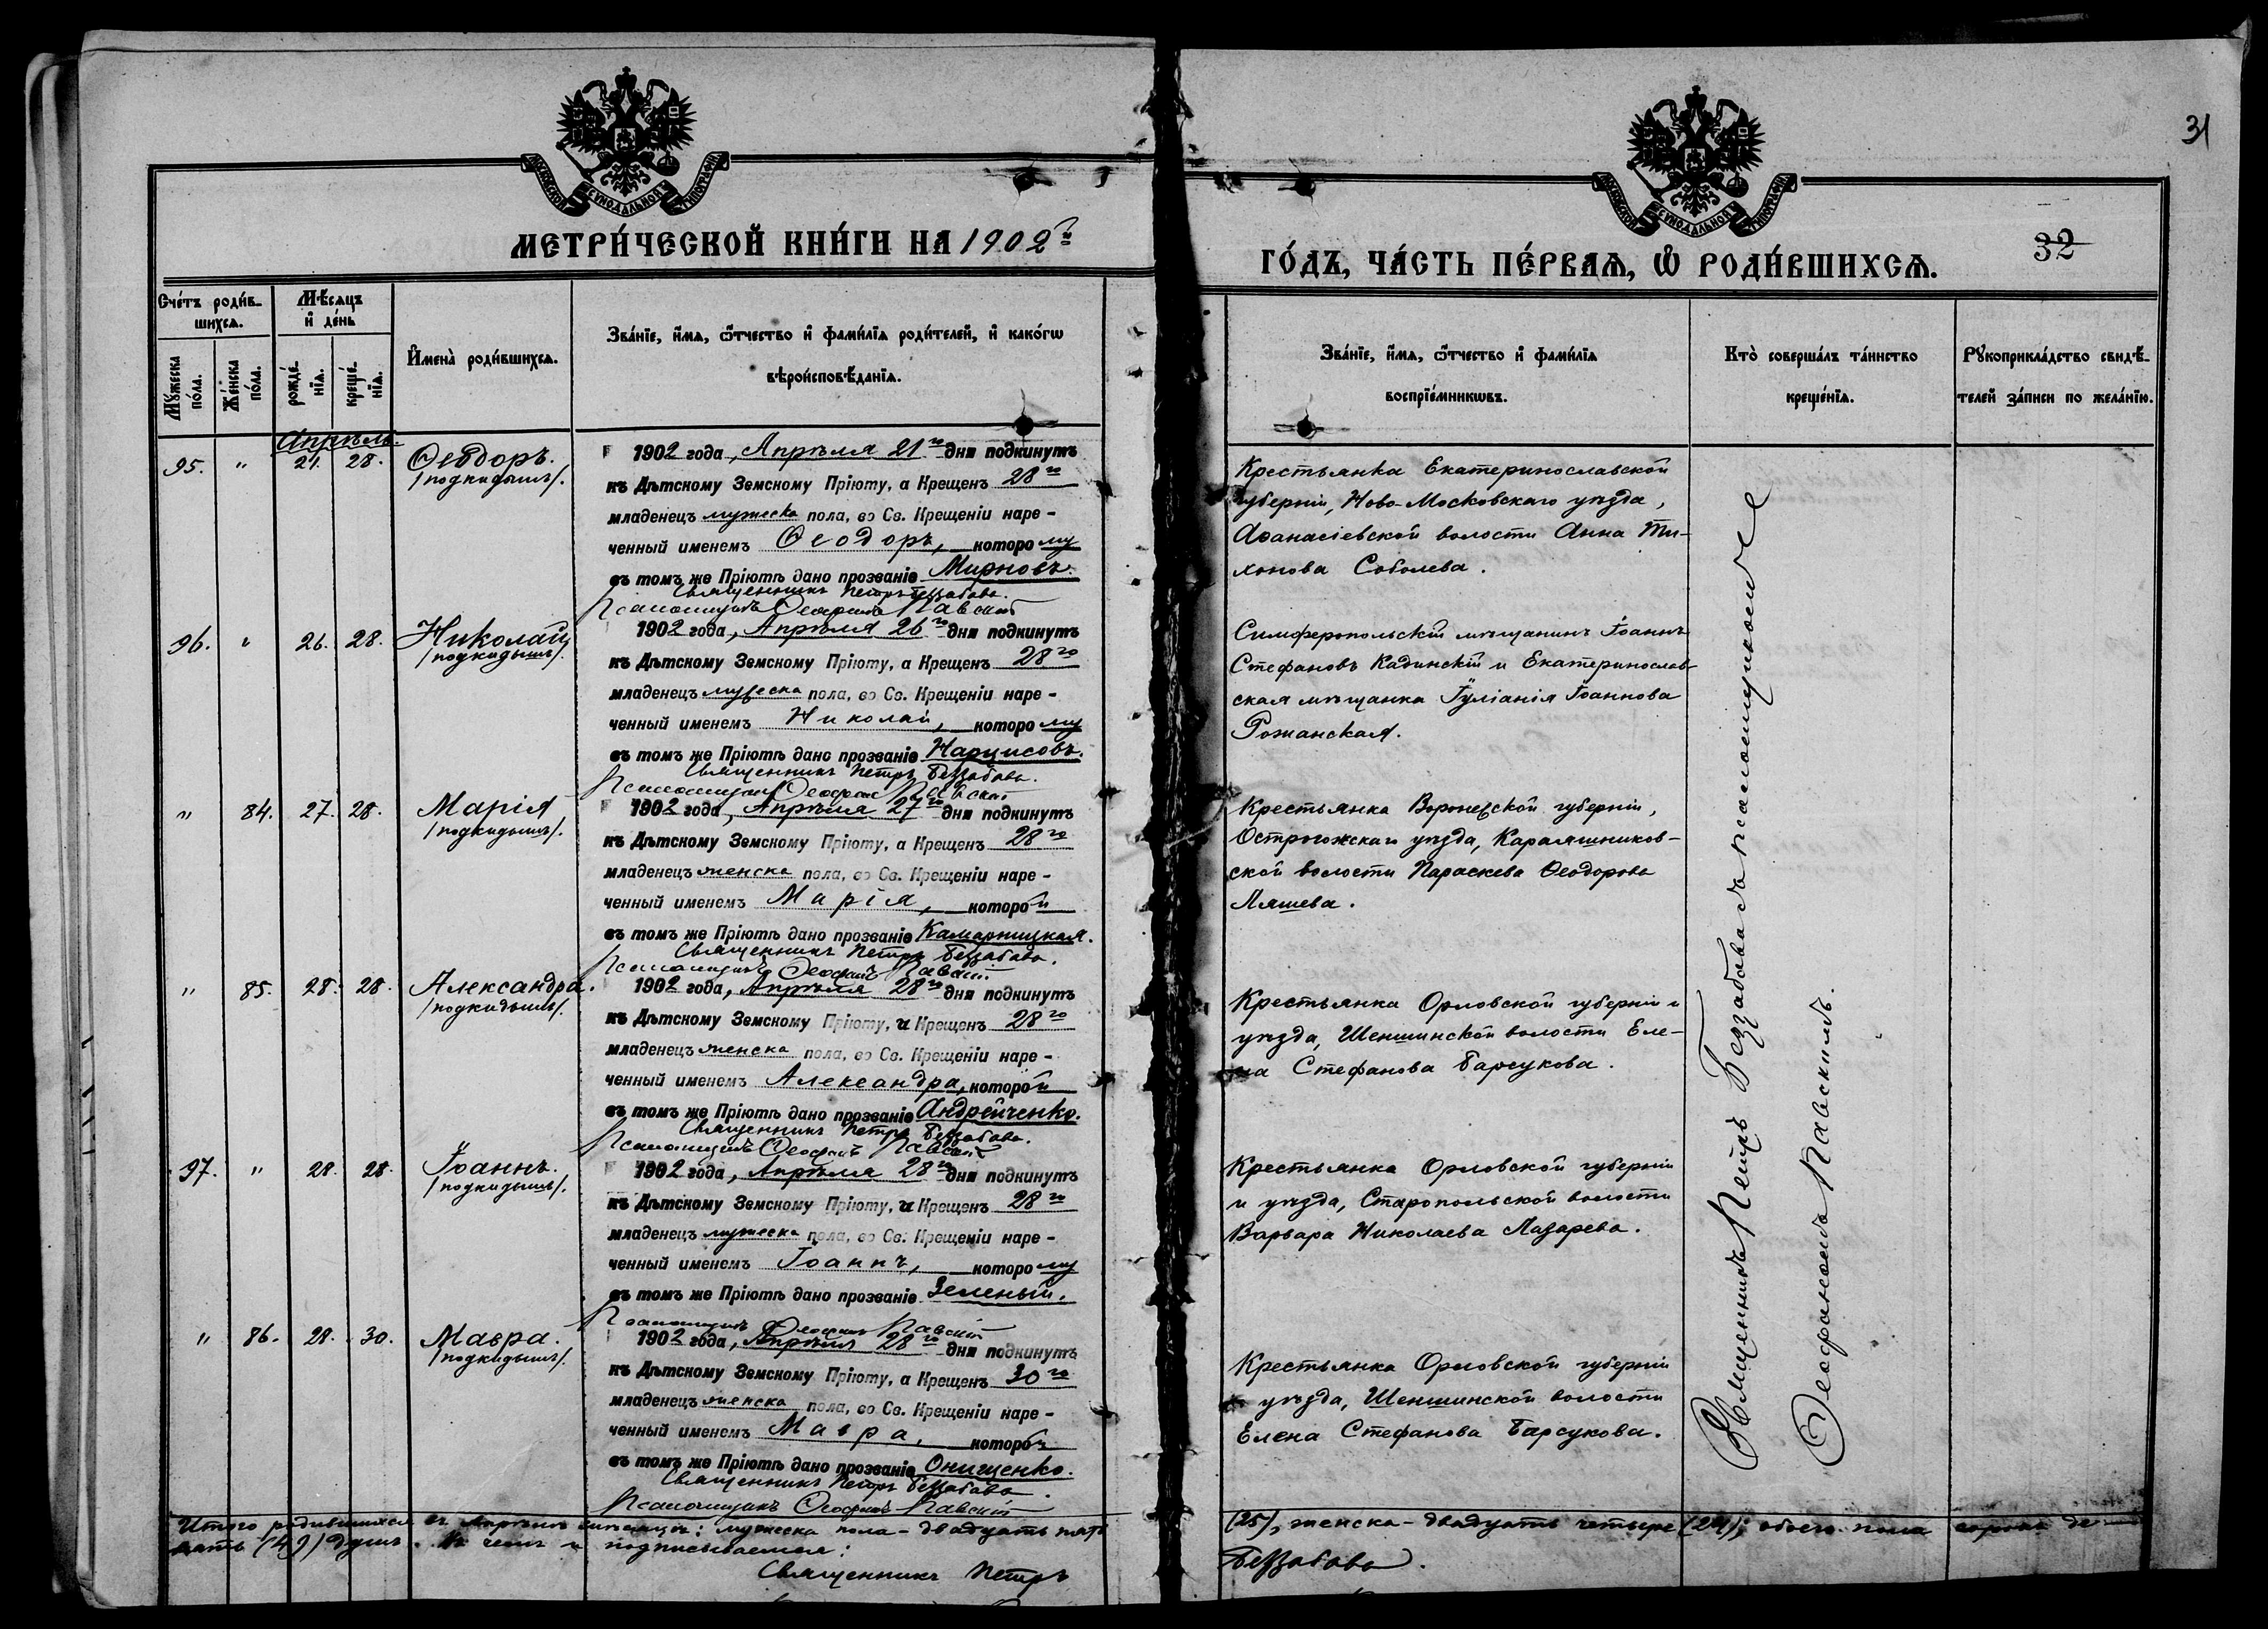 31
МОСКОВСКОЙ СѴНОДАЛЬНОЙ ТИПОГРАФІИ
МОСКОВСКОЙ СѴНОДАЛЬНОЙ ТИПОГРАФІИ
МЕТРИ́ЧЕСКОЙ КНИ́ГИ НА 1902й
ГО́ДЪ, ЧА́СТЬ ПЕ́РВАѦ, Ѡ҆ РОДИ́ВШИХСѦ.
32
Сче́тъ роди́в-
шихсѧ.
Мѣ́сѧцъ
и҆ де́нь
Мꙋ́жеска
по́ла.
Же́нска
по́ла.
рожде́-
нїѧ.
креще́-
нїѧ.
И҆мена̀ роди́вшихсѧ.
Зва́нїе, и҆́мѧ, ѻ҆́тчество и҆ фами́лїѧ роди́телей, и҆ како́гѡ
вѣроисповѣ́данїѧ.
Зва́нїе, и҆́мѧ, ѻ҆́тчество и҆ фами́лїѧ
воспрїе́мникѡвъ.
Кто̀ соверша́лъ та́инство
креще́нїѧ.
Рꙋкоприкла́дство свидѣ́-
телей за́писи по жела́нїю.
Апрѣль.
95. " 21. 28. Ѳеодоръ.
/подкидышъ/.
1902 года, Апрѣля 21го дня подкинутъ
къ Дѣтскому Земскому Пріюту, а Крещенъ 28го
младенецъ мужеска пола, во Св. Крещеніи наре-
ченный именемъ Ѳеодоръ, которому
въ томъ же Пріютѣ дано прозваніе Мирновъ.
Священникъ Петръ Беззабава.
Псаломщикъ Ѳеофанъ Павскій
Крестьянка Екатеринославской
губерніи, Ново-Московскаго уѣзда,
Аѳанасіевской волости Анна Ти-
хонова Соболева.
96. " 26. 28. Николай
/подкидышъ/.
1902 года, Апрѣля 26го дня подкинутъ
къ Дѣтскому Земскому Пріюту, а Крещенъ 28го
младенецъ мужеска пола, во Св. Крещеніи наре-
ченный именемъ Николай, которому
въ томъ же Пріютѣ дано прозваніе Нарцисовъ.
Священникъ Петръ Беззабава.
Псаломщикъ Ѳеофанъ Павскій
Симферопольскій мѣщанинъ Іоаннъ
Стефановъ Кадинскій и Екатеринослав-
ская мѣщанка Іуліанія Іоаннова
Рожанская.
" 84. 27. 28. Марія
/подкидышъ/.
1902 года, Апрѣля 27го дня подкинутъ
къ Дѣтскому Земскому Пріюту, а Крещенъ 28го
младенецъ женска пола, во Св. Крещеніи наре-
ченный именемъ Марія, которой
въ томъ же Пріютѣ дано прозваніе Камарницкая.
Священникъ Петръ Беззабава.
Псаломщикъ Ѳеофанъ Павскій
Крестьянка Воронежской губерніи,
Острогожскаго уѣзда, Караяшников-
ской волости Параскева Ѳеодорова
Ляшева.
" 85. 28. 28. Александра.
/подкидышъ/.
1902 года, Апрѣля 28го дня подкинутъ
къ Дѣтскому Земскому Пріюту, и Крещенъ 28го
младенецъ женска пола, во Св. Крещеніи наре-
ченный именемъ Александра, которой
въ томъ же Пріютѣ дано прозваніе Андрейченко.
Священникъ Петръ Беззабава.
Псаломщикъ Ѳеофанъ Павскій
Крестьянка Орловской губерніи и
уѣзда, Шеншинской волости Еле-
на Стефанова Барсукова.
97. " 28. 28. Іоаннъ.
/подкидышъ/.
1902 года, Апрѣля 28го дня подкинутъ
къ Дѣтскому Земскому Пріюту, и Крещенъ 28го
младенецъ мужеска пола, во Св. Крещеніи наре-
ченный именемъ Іоаннъ, которому
въ томъ же Пріютѣ дано прозваніе Зеленый.
Псаломщикъ Ѳеофанъ Павскій
Крестьянка Орловской губерніи
и уѣзда, Старопольской волости
Варвара Николаева Лазарева.
" 86. 28. 30. Мавра.
/подкидышъ/.
1902 года, Апрѣля 28го дня подкинутъ
къ Дѣтскому Земскому Пріюту, а Крещенъ 30го
младенецъ женска пола, во Св. Крещеніи наре-
ченный именемъ Мавра, которой
въ томъ же Пріютѣ дано прозваніе Онищенко.
Священникъ Петръ Беззабава.
Псаломщикъ Ѳеофанъ Павскій
Крестьянка Орловской губерніи
и уѣзда, Шеншинской волости
Елена Стефанова Барсукова.
Священникъ Петръ Беззабава съ псаломщикомъ
Ѳеофаномъ Павскимъ.
Итого родившихся въ Апрѣлѣ мѣсяцѣ: мужеска пола - двадцать пять (25), женска - двадцать четыре (24); обоего пола сорокъ де-
вять (49) душъ. Въ чемъ и подписываемся:
Священникъ Петръ Беззабава.